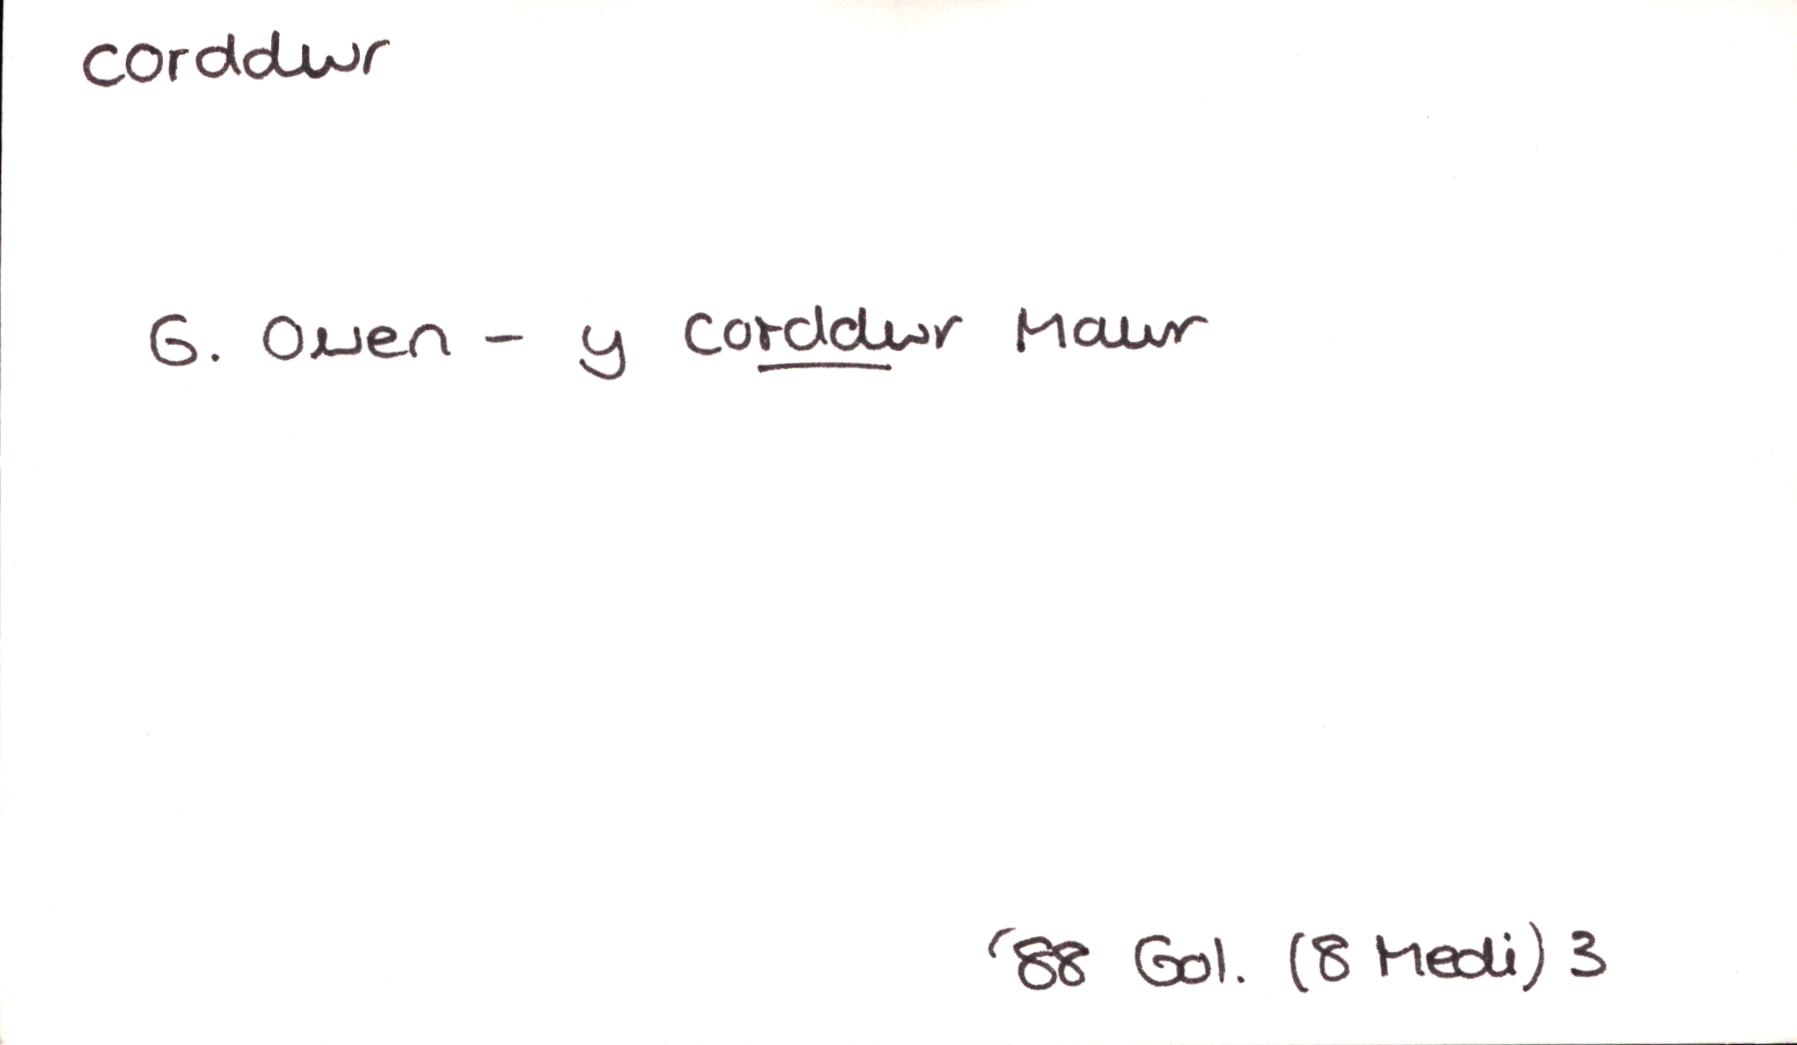 corddwr
G. Owen - y Corddwr Mawr
'88 Gol. (8 Medi) 3